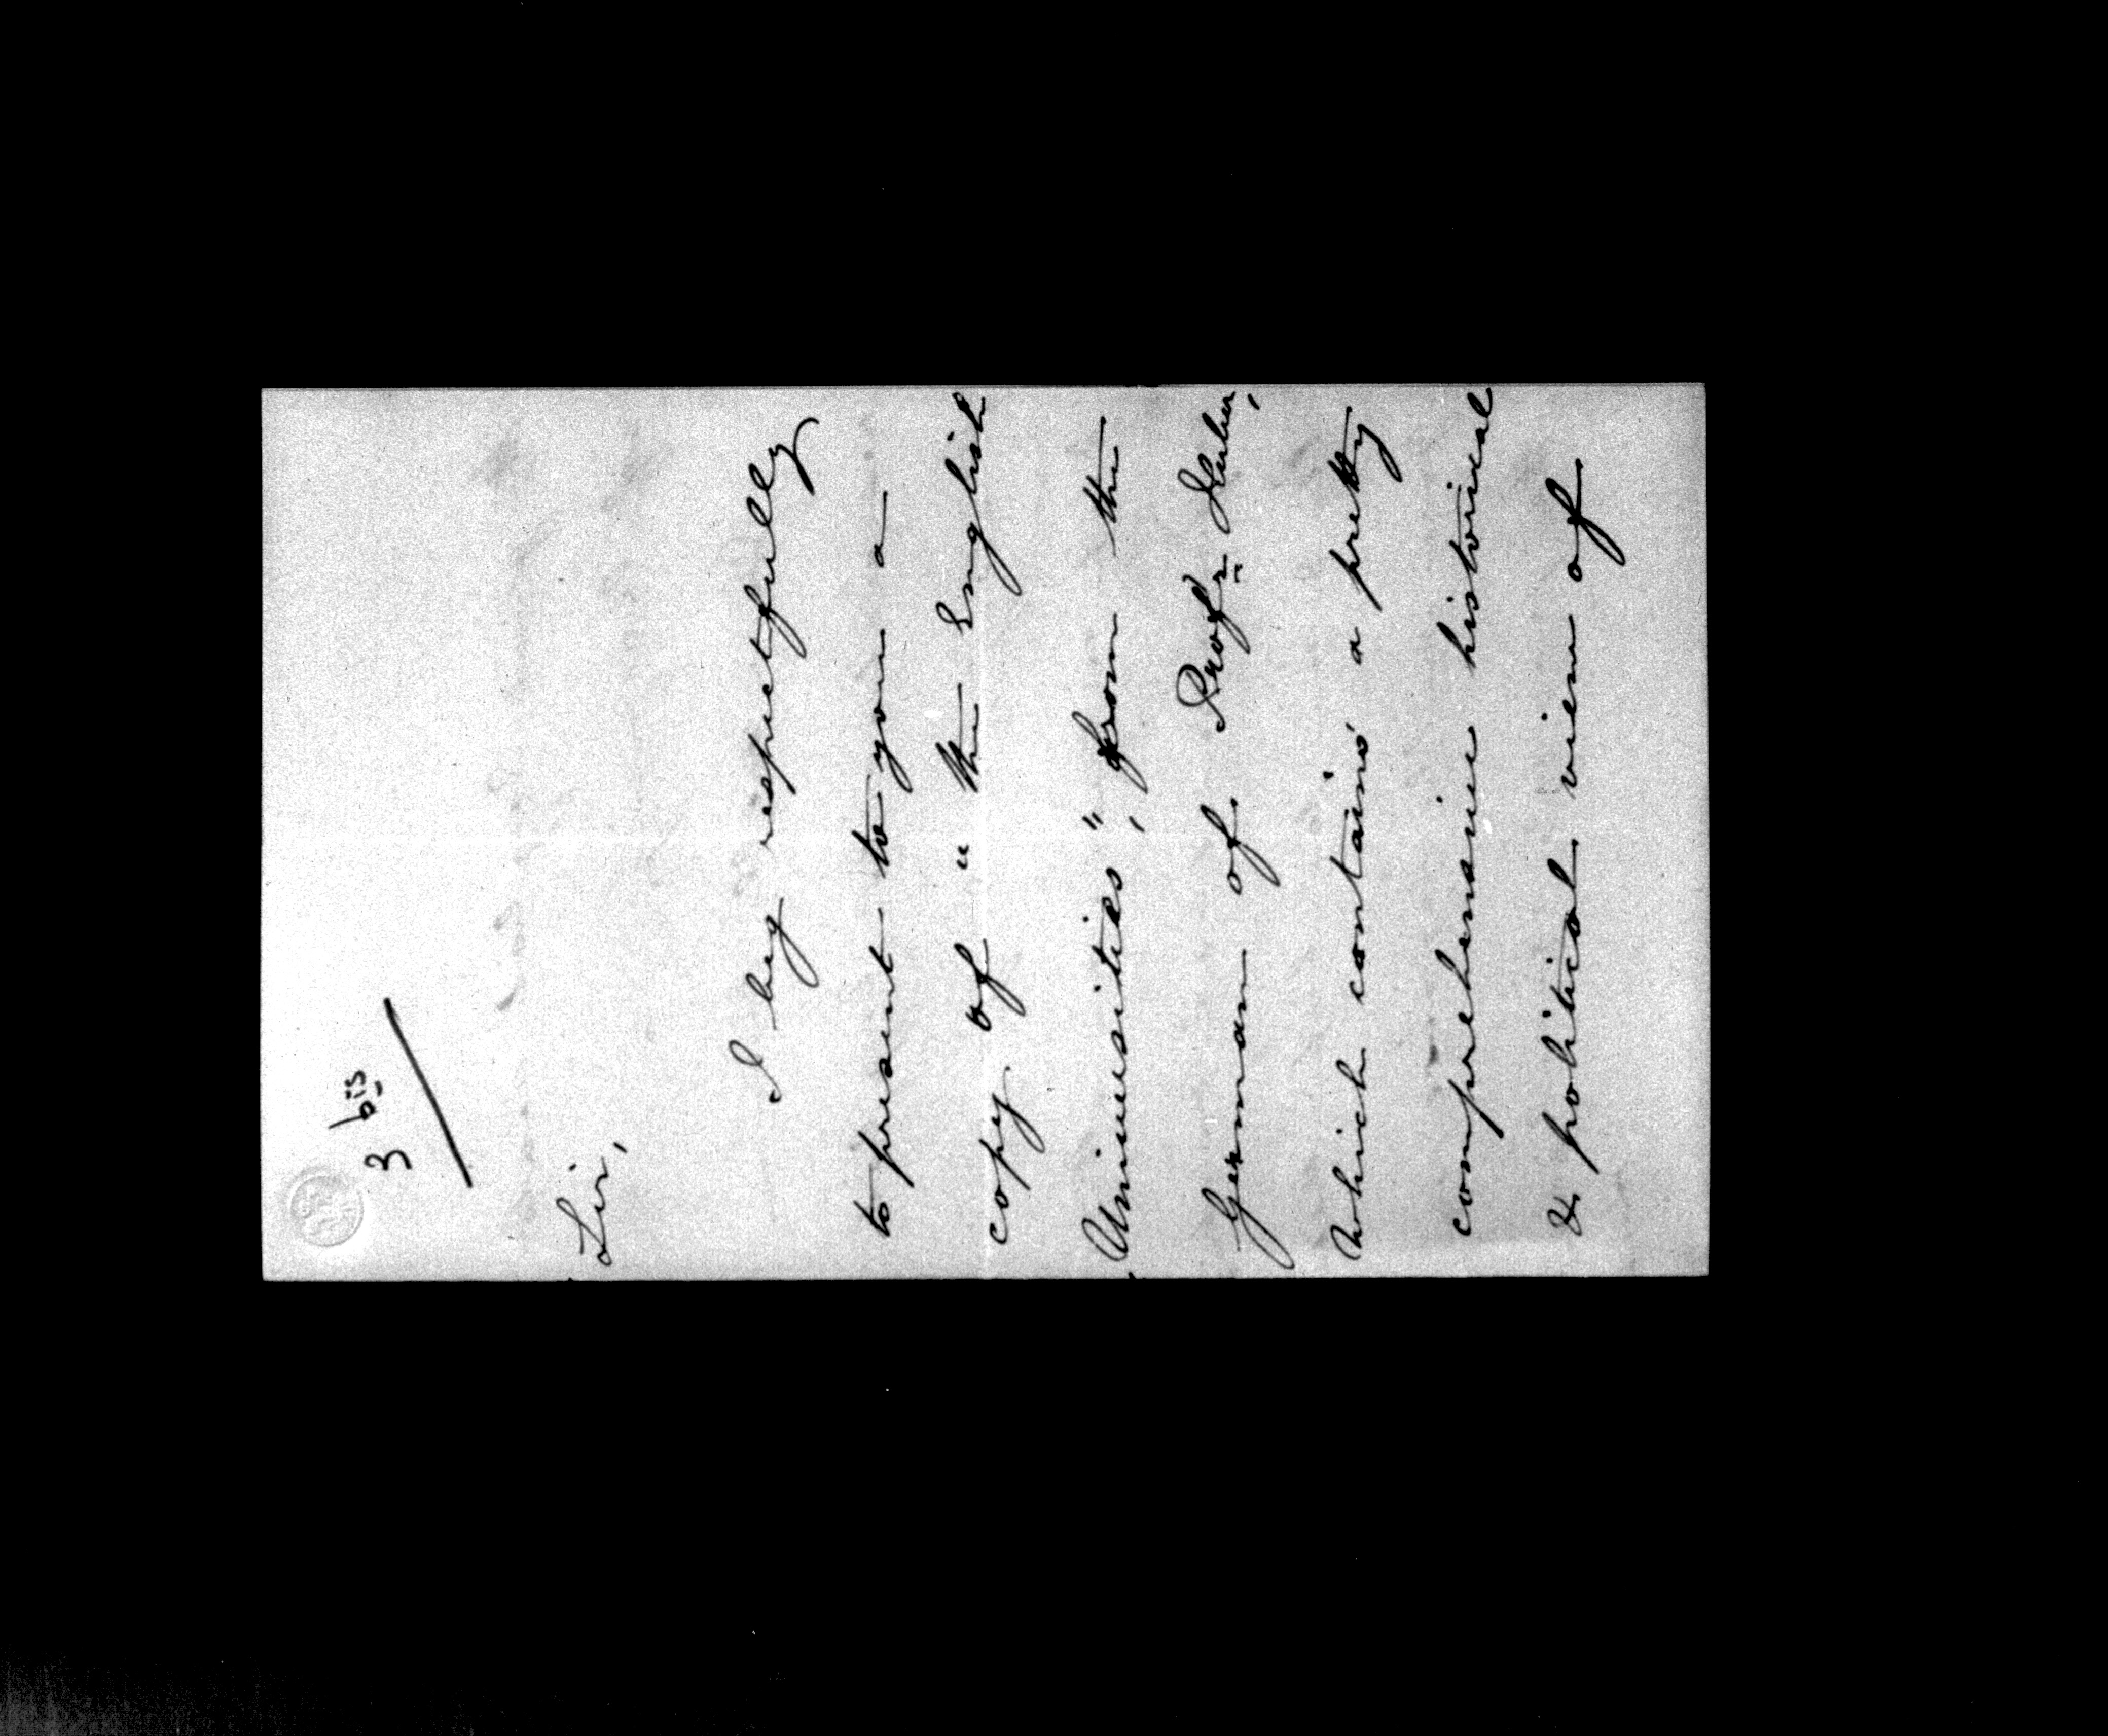 3 bis
Sir,
I beg respectfully
to present to you a
copy of "the English
Universities", from the
German of Profr Huber,
which contains a pretty
comprehensive historical
& political view of